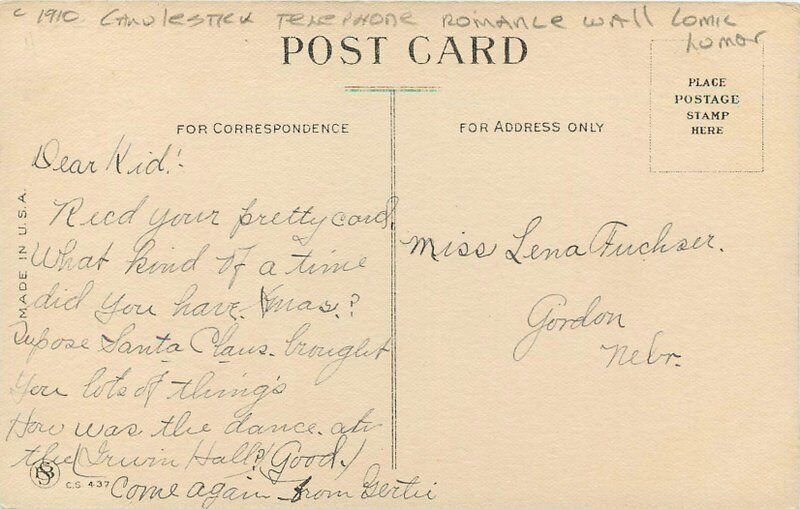 c 1910 CANDLESTICK TELEPHONE ROMANCE WALL COMIC
HUMOR
POST CARD
PLACE
POSTAGE
STAMP
HERE
FOR CORRESPONDENCE
FOR ADDRESS ONLY
MADE IN U.S.A.
Dear Kid!
Recd your pretty card.
What kind of a time
did you have Xmas.?
Supose Santa Claus. brought
You lots of things
How was the dance. at
the (Irwin Hall?) (Good.)
Come again from Gertie
C.S. 437
Miss Lena Fuchser.
Gordon
Nebr.